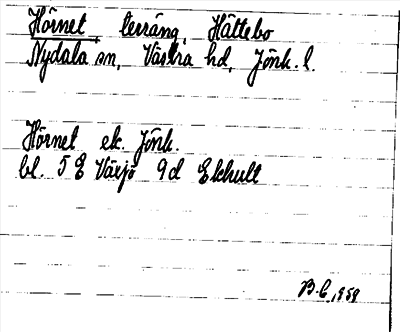 Hörnet terräng, Hättebo
Nydala sn, Västra hd, Jönk. l.
Hörnet ek. Jönk.
bl. 5 E Växjö 9d Ekhult
B.C. 1959